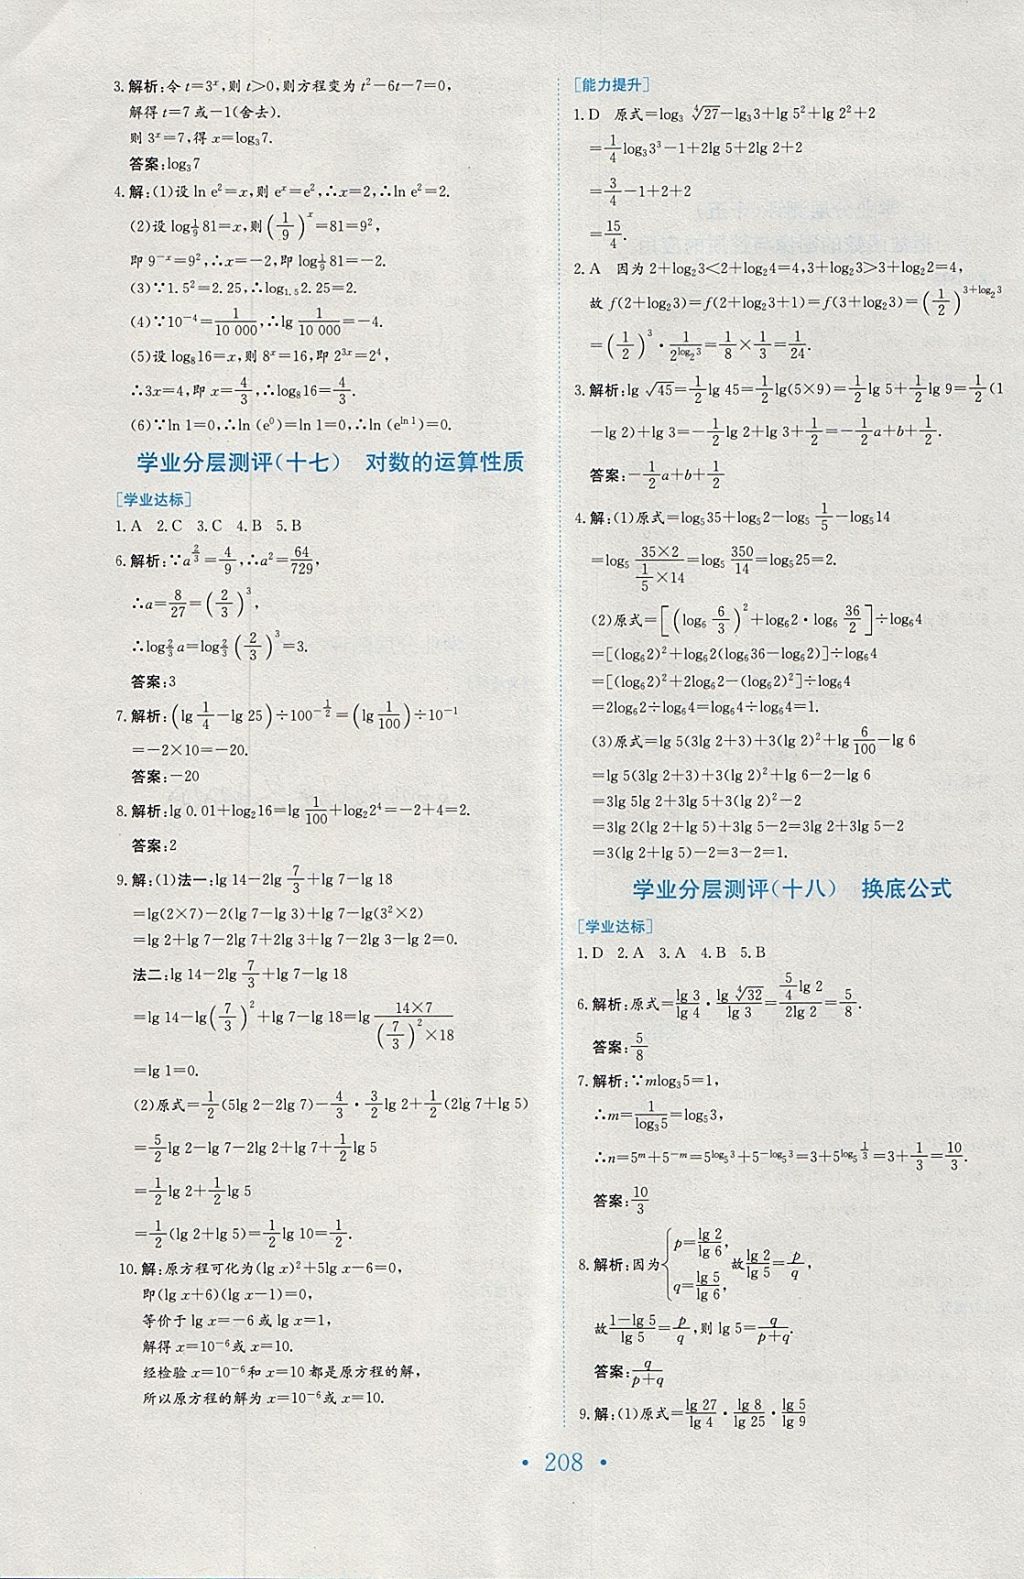 3.解析:令 t=3ˣ,则 t>0,则方程变为 t²-6t-7=0,
解得 t=7 或-1(舍去).
则 3ˣ=7,得 x=log₃7.
答案:log₃7
4.解:(1)设 ln e²=x,则 eˣ=e²,∴x=2,∴ln e²=2.
(2)设 log_{1/9} 81=x,则(1/9)ˣ=81=9²,
即 9⁻ˣ=9²,∴x=-2,即 log_{1/9} 81=-2.
(3)∵1.5²=2.25,∴log₁.₅2.25=2.
(4)∵10⁻⁴=1/10 000,∴lg 1/10 000=-4.
(5)设 log₈16=x,则 8ˣ=16,即 2³ˣ=2⁴,
∴3x=4,即 x=4/3,∴log₈16=4/3.
(6)∵ln 1=0,∴ln (e⁰)=ln 1=0,∴ln (e^{ln 1})=0.
学业分层测评(十七) 对数的运算性质
[学业达标]
1.A 2.C 3.C 4.B 5.B
6.解析:∵a^{2/3}=4/9,∴a²=64/729,
∴a=8/27=(2/3)³,
∴log_{2/3} a=log_{2/3} (2/3)³=3.
答案:3
7.解析:(lg 1/4-lg 25)÷100^{-1/2}=(lg 1/100)÷10⁻¹
=-2×10=-20.
答案:-20
8.解析:lg 0.01+log₂16=lg 1/100+log₂2⁴=-2+4=2.
答案:2
9.解:(1)法一:lg 14-2lg 7/3+lg 7-lg 18
=lg(2×7)-2(lg 7-lg 3)+lg 7-lg(3²×2)
=lg 2+lg 7-2lg 7+2lg 3+lg 7-2lg 3-lg 2=0.
法二:lg 14-2lg 7/3+lg 7-lg 18
=lg 14-lg(7/3)²+lg 7-lg 18=lg (14×7)/((7/3)²×18)
=lg 1=0.
(2)原式=1/2(5lg 2-2lg 7)-4/3·3/2lg 2+1/2(2lg 7+lg 5)
=5/2lg 2-lg 7-2lg 2+lg 7+1/2lg 5
=1/2lg 2+1/2lg 5
=1/2(lg 2+lg 5)=1/2lg 10=1/2.
10.解:原方程可化为(lg x)²+5lg x-6=0,
即(lg x+6)(lg x-1)=0,
等价于 lg x=-6 或 lg x=1,
解得 x=10⁻⁶或 x=10.
经检验 x=10⁻⁶和 x=10 都是原方程的解,
所以原方程的解为 x=10⁻⁶或 x=10.
[能力提升]
1.D 原式=log₃ ⁴√27-log₃3+lg 5²+lg 2²+2
=1/4log₃3³-1+2lg 5+2lg 2+2
=3/4-1+2+2
=15/4.
2.A 因为 2+log₂3<2+log₂4=4,3+log₂3>3+log₂2=4,
故 f(2+log₂3)=f(2+log₂3+1)=f(3+log₂3)=(1/2)^{3+log₂3}
=(1/2)³·1/2^{log₂3}=1/8×1/3=1/24.
3.解析:lg √45=1/2lg 45=1/2lg(5×9)=1/2lg 5+1/2lg 9=1/2(1
-lg 2)+lg 3=-1/2lg 2+lg 3+1/2=-1/2a+b+1/2.
答案:-1/2a+b+1/2
4.解:(1)原式=log₅35+log₅2-log₅ 1/5-log₅14
=log₅ (35×2)/(1/5×14)=log₅ 350/14=log₅25=2.
(2)原式=[(log₆ 6/3)²+log₆2·log₆ 36/2]÷log₆4
=[(log₆2)²+log₆2(log₆36-log₆2)]÷log₆4
=[(log₆2)²+2log₆2-(log₆2)²]÷log₆4
=2log₆2÷log₆4=log₆4÷log₆4=1.
(3)原式=lg 5(3lg 2+3)+3(lg 2)²+lg 6/100-lg 6
=lg 5(3lg 2+3)+3(lg 2)²+lg 6-2-lg 6
=3lg 5lg 2+3lg 5+3(lg 2)²-2
=3lg 2(lg 2+lg 5)+3lg 5-2=3lg 2+3lg 5-2
=3(lg 2+lg 5)-2=3-2=1.
学业分层测评(十八) 换底公式
[学业达标]
1.D 2.A 3.A 4.B 5.B
6.解析:原式=lg 3/lg 4·lg ⁴√32/lg 3=(5/4lg 2)/(2lg 2)=5/8.
答案:5/8
7.解析:∵mlog₃5=1,
∴m=1/log₃5=log₅3,
∴n=5ᵐ+5⁻ᵐ=5^{log₅3}+5^{-log₅3}=3+5^{log₅ 1/3}=3+1/3=10/3.
答案:10/3
8.解析:因为{p=lg 2/lg 6, q=lg 5/lg 6, 故lg 2/lg 5=p/q,
故(1-lg 5)/lg 5=p/q,则 lg 5=q/(p+q).
答案:q/(p+q)
9.解:(1)原式=lg 27/lg 4·lg 8/lg 25·lg 5/lg 9
• 208 •